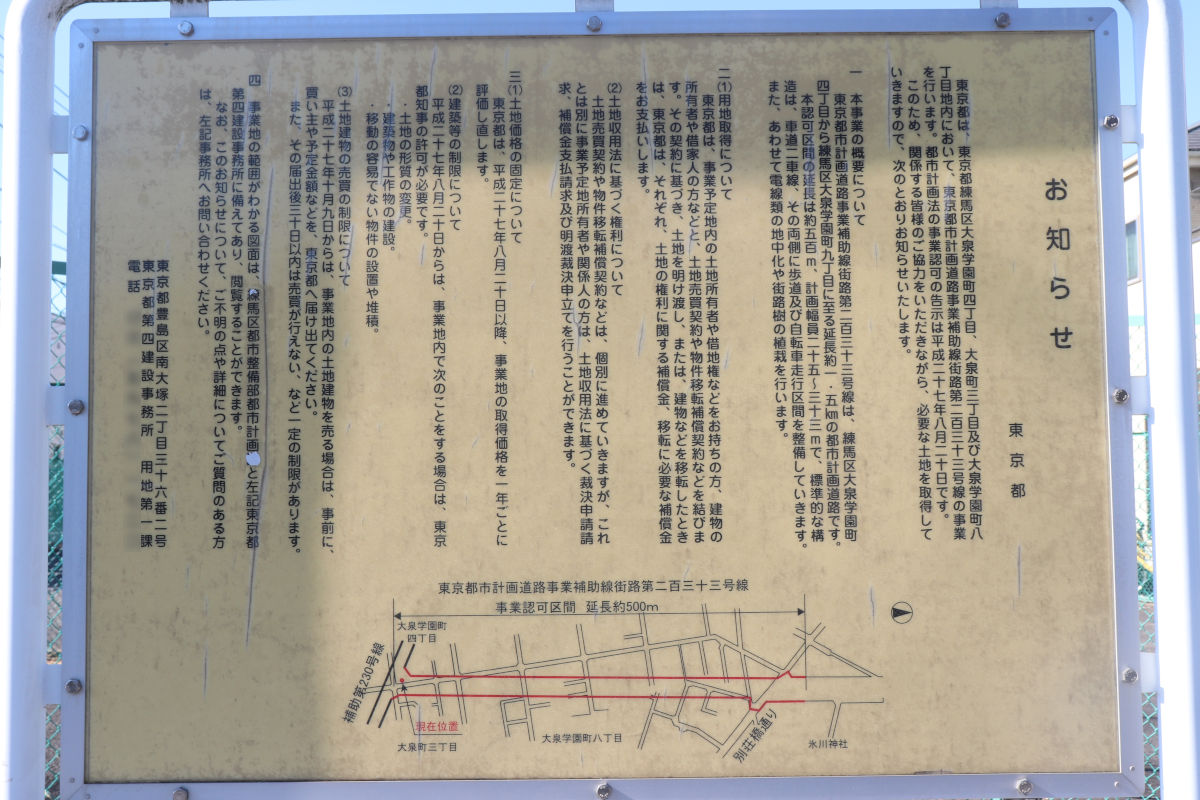 お知らせ
東京都
東京都は、東京都練馬区大泉学園町四丁目、大泉町三丁目及び大泉学園町八
丁目地内において、東京都市計画道路事業補助線街路第二百三十三号線の事業
を行います。都市計画法の事業認可の告示は平成二十七年八月二十日です。
このため、関係する皆様のご協力をいただきながら、必要な土地を取得して
いきますので、次のとおりお知らせいたします。
一 本事業の概要について
東京都市計画道路事業補助線街路第二百三十三号線は、練馬区大泉学園町
四丁目から練馬区大泉学園町九丁目に至る延長約一・五㎞の都市計画道路です。
本認可区間の延長は約五百ｍ、計画幅員二十五～三十三ｍで、標準的な構
造は、車道二車線、その両側に歩道及び自転車走行区間を整備していきます。
また、あわせて電線類の地中化や街路樹の植栽を行います。
二⑴用地取得について
東京都は、事業予定地内の土地所有者や借地権などをお持ちの方、建物の
所有者や借家人の方などと、土地売買契約や物件移転補償契約などを結びま
す。その契約に基づき、土地を明け渡し、または、建物などを移転したとき
は、東京都は、それぞれ、土地の権利に関する補償金、移転に必要な補償金
をお支払いします。
⑵土地収用法に基づく権利について
土地売買契約や物件移転補償契約などは、個別に進めていきますが、これ
とは別に事業予定地所有者や関係人の方は、土地収用法に基づく裁決申請請
求、補償金支払請求及び明渡裁決申立てを行うことができます。
三⑴土地価格の固定について
東京都は、平成二十七年八月二十日以降、事業地の取得価格を一年ごとに
評価し直します。
⑵建築等の制限について
平成二十七年八月二十日からは、事業地内で次のことをする場合は、東京
都知事の許可が必要です。
・土地の形質の変更。
・建築物や工作物の建設。
・移動の容易でない物件の設置や堆積。
⑶土地建物の売買の制限について
平成二十七年十月九日からは、事業地内の土地建物を売る場合は、事前に、
買い主や予定金額などを、東京都へ届け出てください。
また、その届出後三十日以内は売買が行えない、など一定の制限があります。
四 事業地の範囲がわかる図面は、練馬区都市整備部都市計画と左記東京都
第四建設事務所に備えてあり、閲覧することができます。
なお、このお知らせについて、ご不明の点や詳細についてご質問のある方
は、左記事務所へお問い合わせください。
東京都豊島区南大塚二丁目三十六番二号
東京都第四建設事務所 用地第一課
電話
東京都市計画道路事業補助線街路第二百三十三号線
事業認可区間 延長約500m
大泉学園町
四丁目
補助第230号線
現在位置
大泉町三丁目
大泉学園町八丁目
別荘橋通り
氷川神社